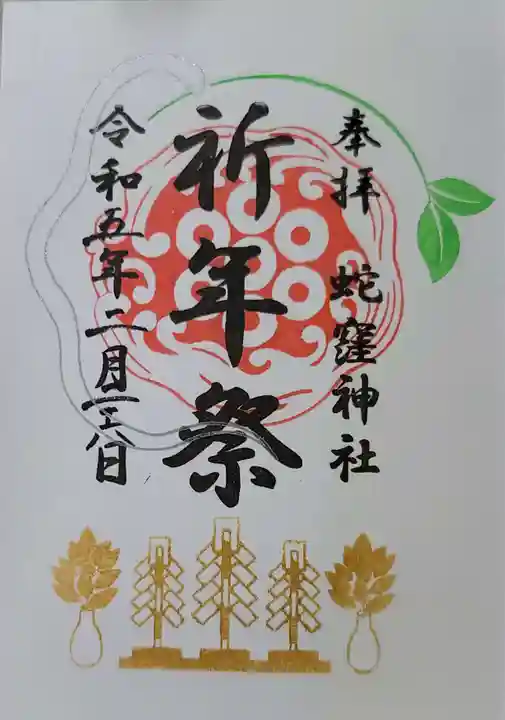 奉拝 蛇窪神社
祈年祭
令和五年二月 日